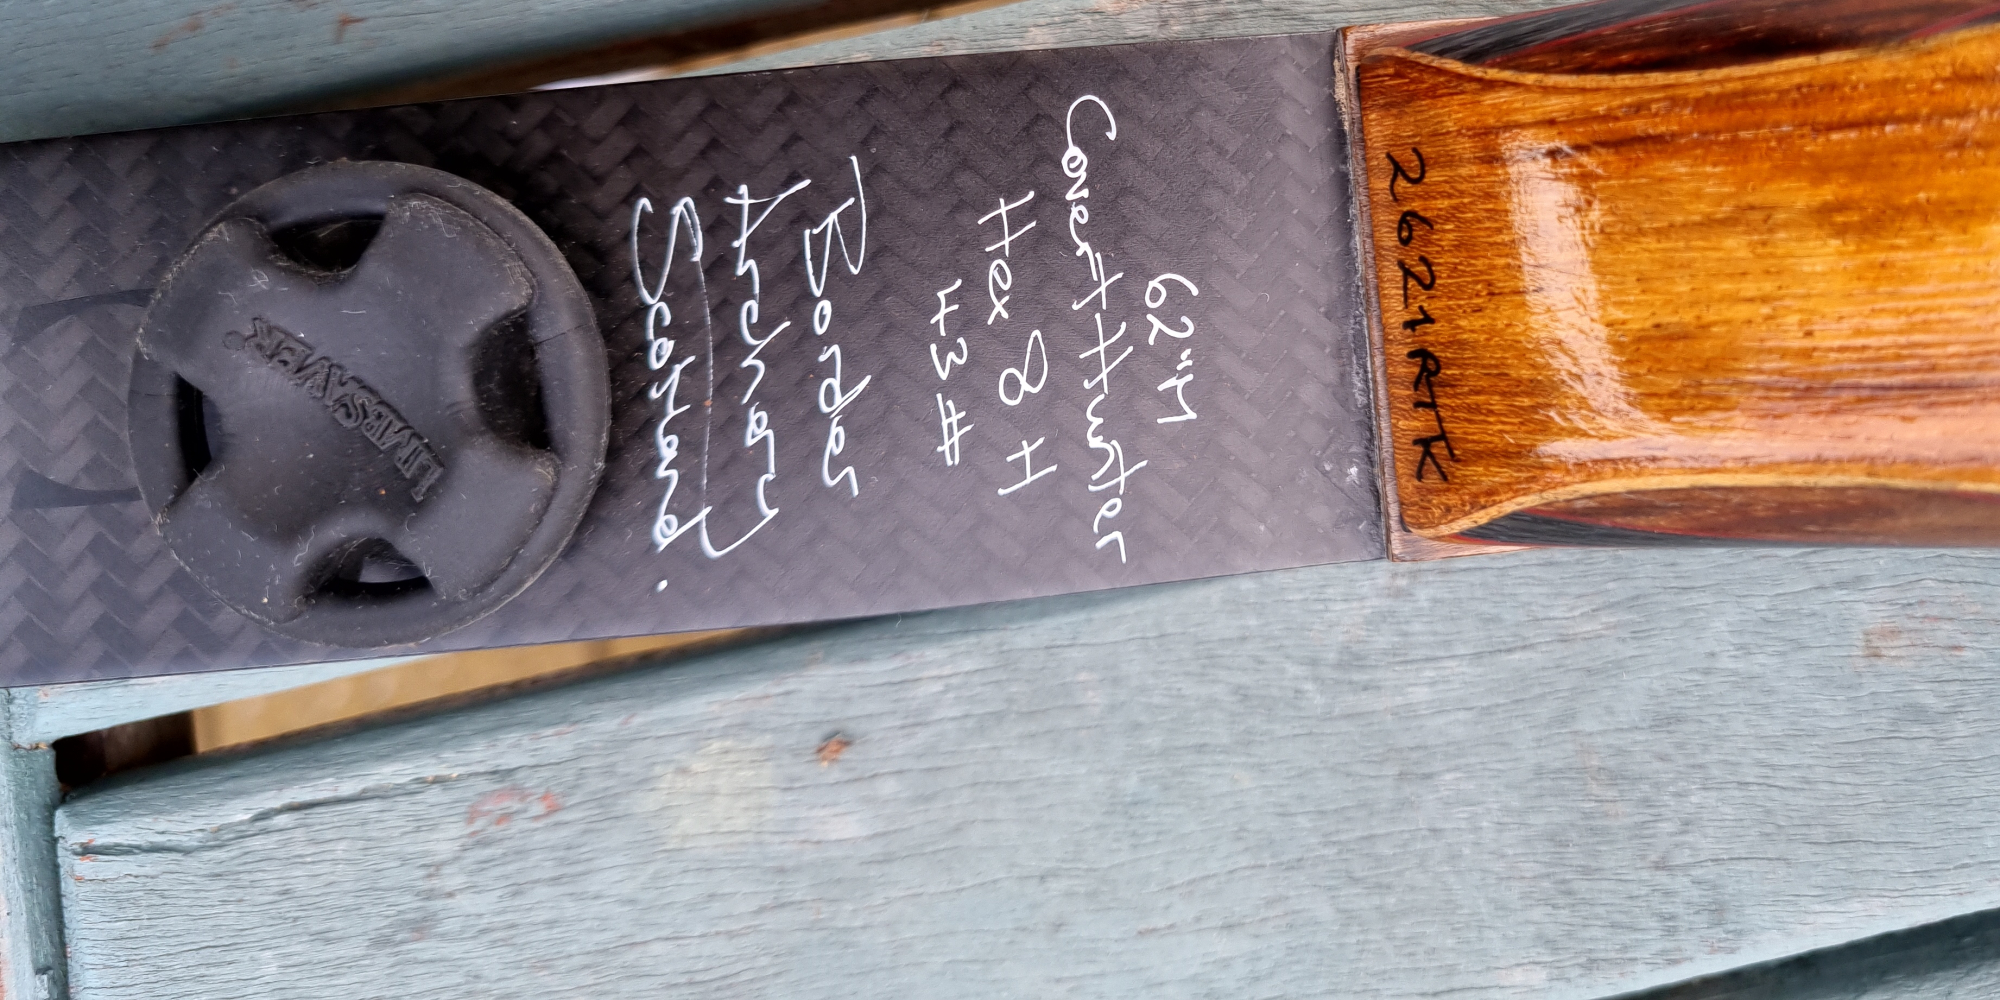 2621RTK
62"M
Covert Hunter
Hex 8 H
43#
Border
Archery
Scotland.
LIMBSAVER